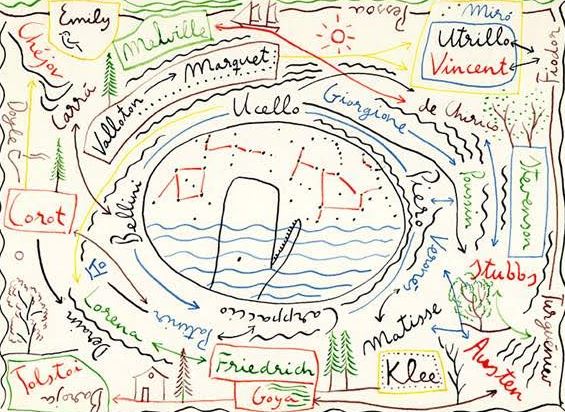 Emily
Melville
Pessoa
Miró
Utrillo
Vincent
Fiodor
Chéjov
Marquet
Carrá
Vallotton
Ucello
Giorgione
de Chirico
Doyle
Piero
Poussin
Stevenson
Corot
Bellini
Verones
Stubbs
Lorena
Patinir
Carpaccio
Derain
Matisse
Turguéniev
Tolstoi
Baroja
Friedrich
Goya
Klee
Austen